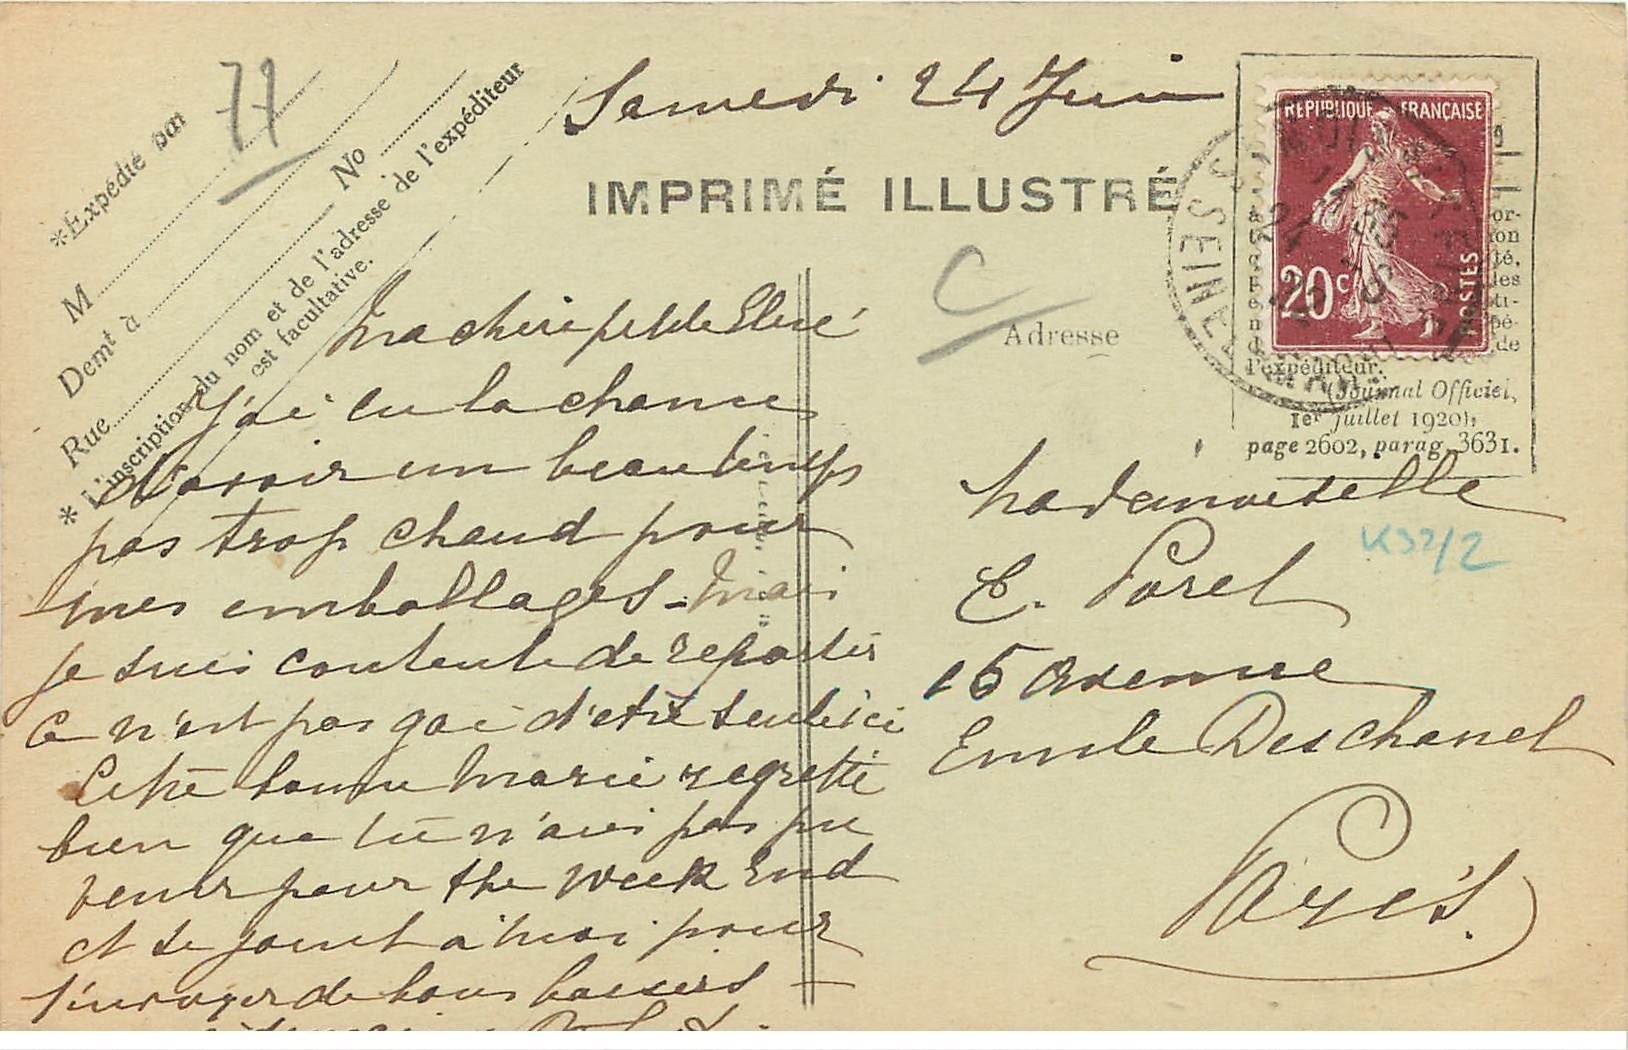 Samedi 24 Juin
77
*Expédié par
M
Demt à
Rue
No
* L'inscription du nom et de l'adresse de l'expéditeur
est facultative.
IMPRIMÉ ILLUSTRÉ
C
Adresse
RÉPUBLIQUE FRANÇAISE
20c
POSTES
SEINE
l'expéditeur.
(Journal Officiel,
1er juillet 1920),
page 2602, parag. 3631.
Ma chère petite
J'ai eu la chance
d'avoir un beau temps
pas trop chaud pour
mes emballages - Mais
je suis contente de repartir
Ce n'est pas gai d'être seule ici
Cette bonne Marie regrette
bien que tu n'aies pas pu
venir pour the Week End
et se joint à moi pour
t'envoyer de bons baisers
Mademoiselle
K32/2
E. Porel
15 Avenue
Emile Deschanel
Paris